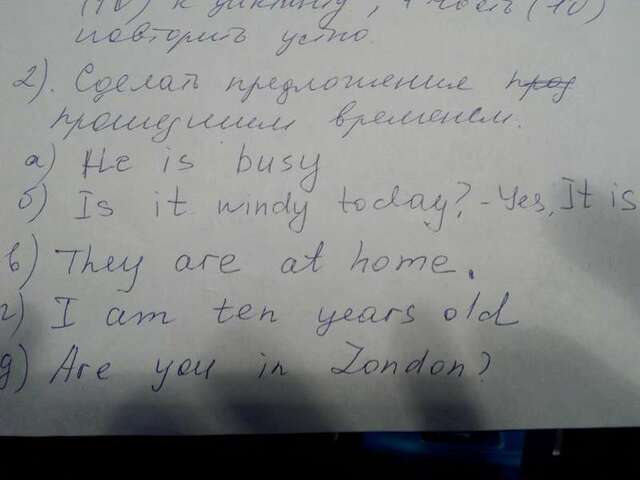 (IV) к диктанту, 4 часть (IV)
повторить устно.
2). Сделать предложения
прошедшим временем.
а) He is busy
б) Is it windy today? - Yes, It is
в) They are at home.
г) I am ten years old
д) Are you in London?